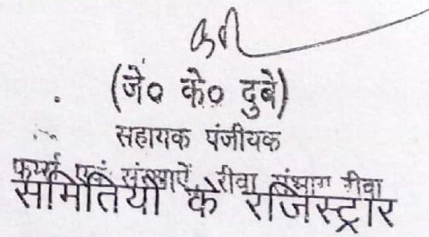 (जे० के० दुबे)
सहायक पंजीयक
फर्म्स एवं संस्थाऐं रीवा संभाग रीवा
समितियों के रजिस्ट्रार